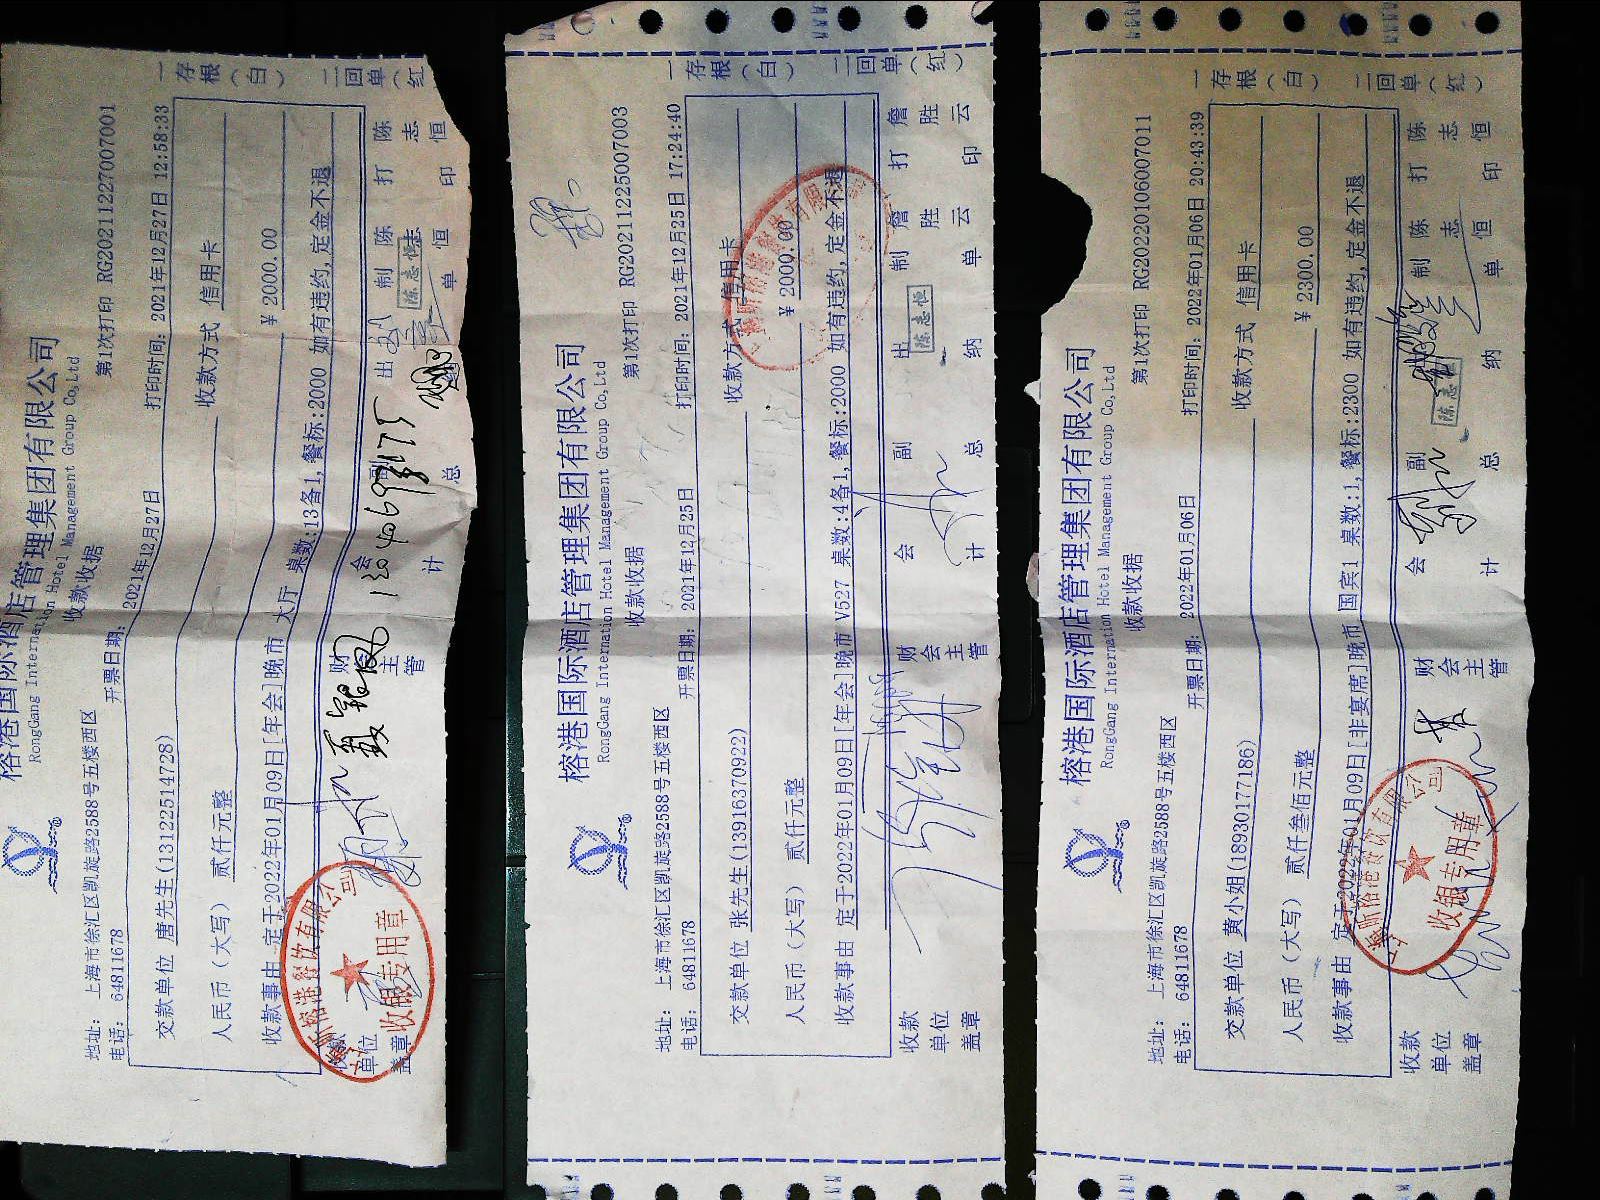 榕港国际酒店管理集团有限公司
RongGang Internation Hotel Management Group Co,Ltd
收款收据
第1次打印 RG20211227007001
地址: 上海市徐汇区凯旋路2588号五楼西区
电话: 64811678
开票日期: 2021年12月27日
打印时间: 2021年12月27日 12:58:33
交款单位 唐先生(13122514728)
收款方式 信用卡
人民币(大写) 贰仟元整
¥ 2000.00
收款事由 定于2022年01月09日[年会]晚市 大厅 桌数:13备1,餐标:2000 如有违约,定金不退
收款单位盖章
财会主管
会计
副总
出
制单 陈志恒
打印 陈志恒
陈志恒
收银专用章
一存根(白)
二回单(红)
榕港国际酒店管理集团有限公司
RongGang Internation Hotel Management Group Co,Ltd
收款收据
第1次打印 RG20211225007003
地址: 上海市徐汇区凯旋路2588号五楼西区
电话: 64811678
开票日期: 2021年12月25日
打印时间: 2021年12月25日 17:24:40
交款单位 张先生(13916370922)
收款方式 信用卡
人民币(大写) 贰仟元整
¥ 2000.00
收款事由 定于2022年01月09日[年会]晚市 V527 桌数:4备1,餐标:2000 如有违约,定金不退
收款单位盖章
财会主管
会计
副总
出纳
制单 詹胜云
打印 詹胜云
陈志恒
一存根(白)
二回单(红)
榕港国际酒店管理集团有限公司
RongGang Internation Hotel Management Group Co,Ltd
收款收据
第1次打印 RG20220106007011
地址: 上海市徐汇区凯旋路2588号五楼西区
电话: 64811678
开票日期: 2022年01月06日
打印时间: 2022年01月06日 20:43:39
交款单位 黄小姐(18930177186)
收款方式 信用卡
人民币(大写) 贰仟叁佰元整
¥ 2300.00
收款事由 定于2022年01月09日[非宴席]晚市 国宾1 桌数:1,餐标:2300 如有违约,定金不退
收款单位盖章
财会主管
会计
副总
纳
制单 陈志恒
打印 陈志恒
收银专用章
一存根(白)
二回单(红)